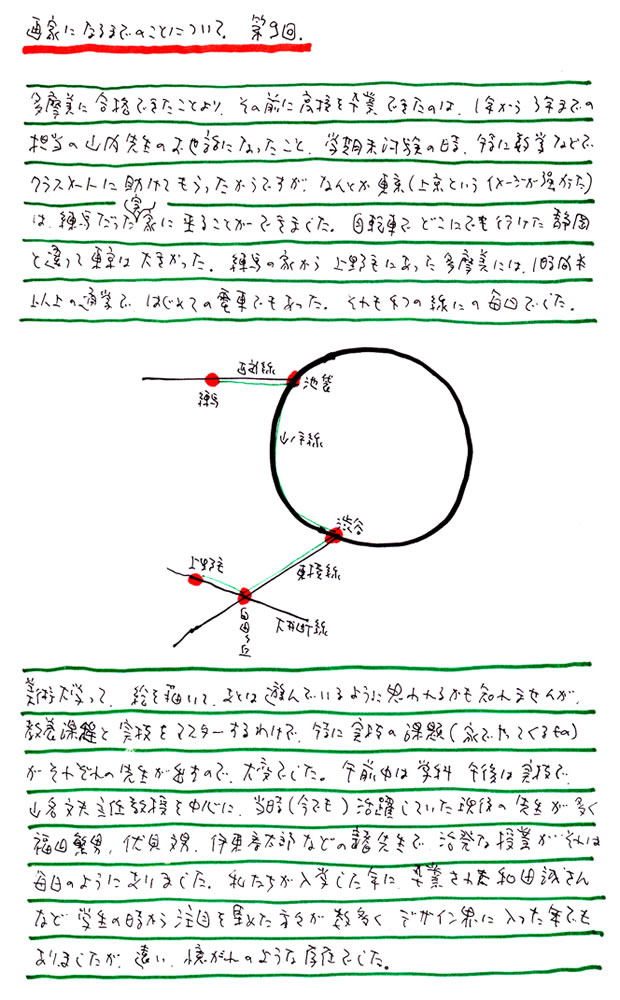 画家になるまでのことについて。 第9回.
多摩美に合格できたことより、その前に高校を卒業できたのは、1年から3年までの
担当の山内先生のお世話になったこと、学期末試験の時、特に数学などで
クラスメートに助けてもらったからですが、なんとか東京(上京というイメージが強かった)
は、練馬だった実家に来ることができました。自転車でどこにでも行けた静岡
と違って東京は大きかった。練馬の家から上野毛にあった多摩美には、1時間半
以上の通学で、はじめての電車でもあった。それも4つの線にの毎日でした。
西武線
練馬
池袋
山ノ手線
渋谷
東横線
上野毛
自由ヶ丘
大井町線
美術大学って、絵を描いて、あとは遊んでいるように思われるかも知れませんが、
教養課程と実技をマスターするわけで、特に実技の課題(家でやってくるもの)
がそれぞれの先生が出すので、大変でした。午前中は学科 午後は実技で、
山名文夫主任教授を中心に、当時(今でも)活躍していた現役の先生が多く
福田繁男、伏見文男、伊東寿太郎などの諸先生で、活発な授業がそれは
毎日のようにありました。私たちが入学した年に、卒業された和田誠さん
など 学生の時から注目を集めた方々が数多く デザイン界に入った年でも
ありましたが、遠い、憧がれのような存在でした。